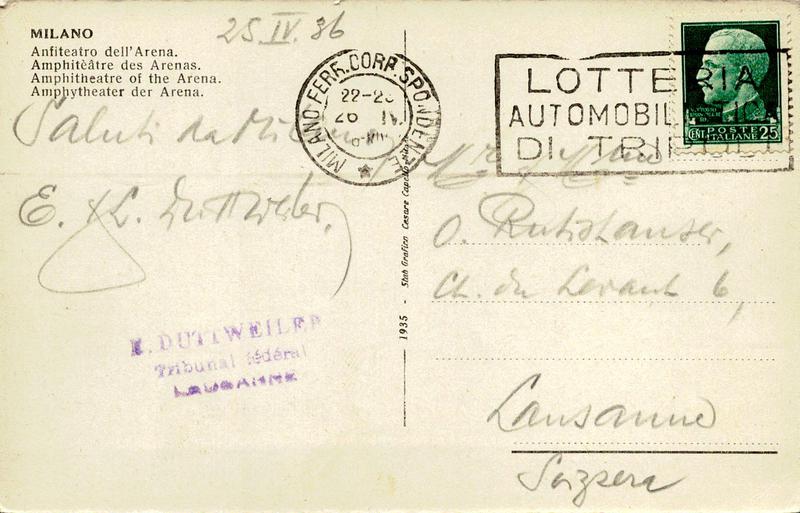 MILANO
Anfiteatro dell'Arena.
Amphitèâtre des Arenas.
Amphitheatre of the Arena.
Amphytheater der Arena.
25 IV. 36
MILANO FERR. CORRISPONDENZE
22-23
26 IV.
LOTTERIA
AUTOMOBILISTICA
DI TRIPOLI
CENT. POSTE ITALIANE 25
Saluti da Milano
E. & L. Duttweiler,
M. & Mme
O. Rutishauser,
Ch. du Levant 6,
Lausanne
Svizzera
E. DUTTWEILER
Tribunal fédéral
LAUSANNE
1935 - Stab Grafico Cesare Capello